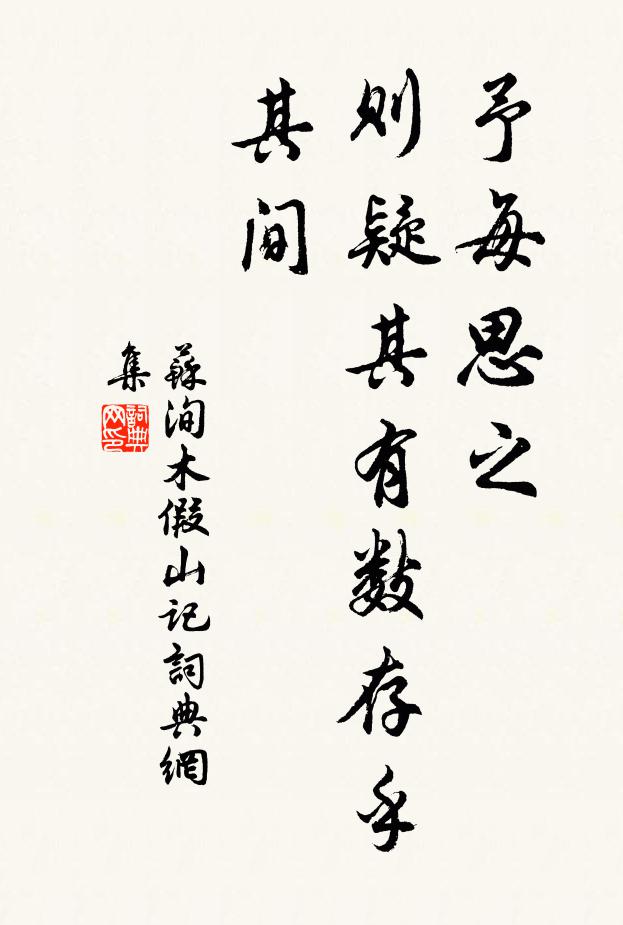 予每思之
則疑其有數存乎
其間
蘇洵木假山記詞典網
集
詞典
网印